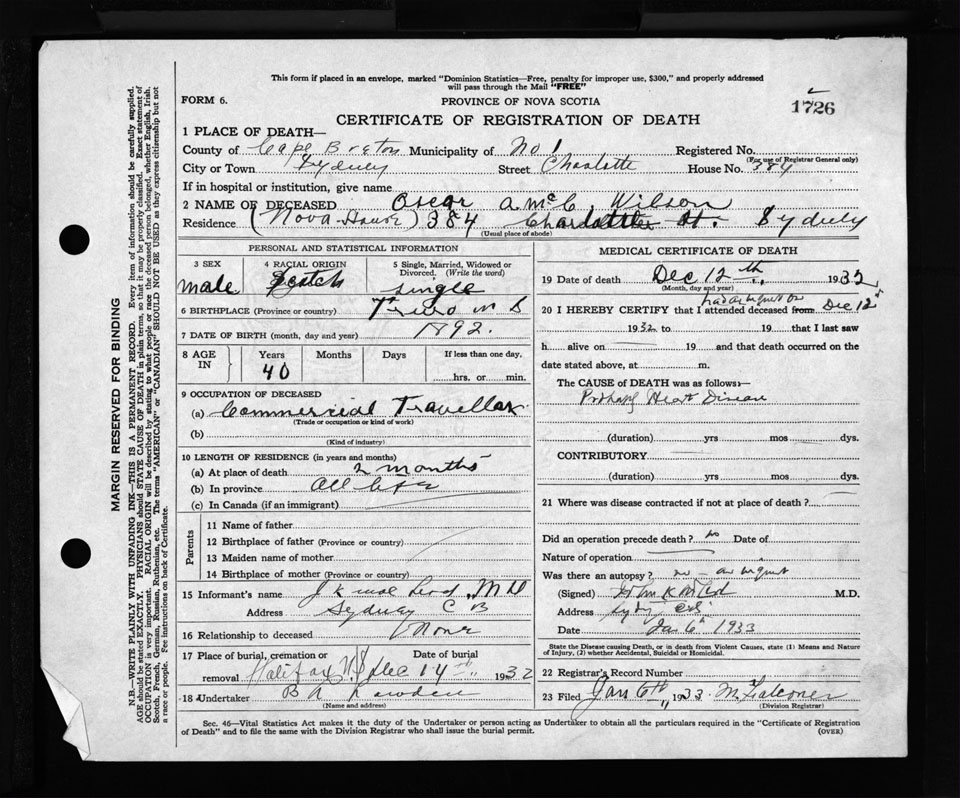 This form if placed in an envelope, marked "Dominion Statistics—Free, penalty for improper use, $300," and properly addressed
will pass through the Mail "FREE"
FORM 6.
PROVINCE OF NOVA SCOTIA
1726
CERTIFICATE OF REGISTRATION OF DEATH
1 PLACE OF DEATH—
County of Cape Breton Municipality of No 1 Registered No.
(For use of Registrar General only)
City or Town Sydney Street Charlotte House No. 384
If in hospital or institution, give name
2 NAME OF DECEASED Oscar A. McC. Wilson
Residence (Nova House) 384 Charlotte St. Sydney
(Usual place of abode)
PERSONAL AND STATISTICAL INFORMATION
3 SEX male
4 RACIAL ORIGIN Scotch
5 Single, Married, Widowed or Divorced. (Write the word) single
6 BIRTHPLACE (Province or country) Truro N S
7 DATE OF BIRTH (month, day and year) 1892.
8 AGE IN Years Months Days If less than one day,
40 hrs. or min.
9 OCCUPATION OF DECEASED
(a) Commercial Traveller
(Trade or occupation or kind of work)
(b)
(Kind of industry)
10 LENGTH OF RESIDENCE (in years and months)
(a) At place of death 2 months
(b) In province all life
(c) In Canada (if an immigrant)
Parents
11 Name of father
12 Birthplace of father (Province or country)
13 Maiden name of mother
14 Birthplace of mother (Province or country)
15 Informant's name J K McLeod, M D
Address Sydney C B
16 Relationship to deceased None
17 Place of burial, cremation or removal Halifax N.S. Date of burial Dec 14th 1932
18 Undertaker B A Lowden
(Name and address)
MEDICAL CERTIFICATE OF DEATH
19 Date of death Dec 12th 1932
(Month, day and year)
had an inquest on
20 I HEREBY CERTIFY that I attended deceased from Dec 12th
1932 to 19 that I last saw
h alive on 19 and that death occurred on the
date stated above, at m.
The CAUSE OF DEATH was as follows:—
Probably Heart Disease
(duration) yrs mos dys.
CONTRIBUTORY
(duration) yrs mos dys.
21 Where was disease contracted if not at place of death?
Did an operation precede death? no Date of
Nature of operation
Was there an autopsy? no – an inquest
(Signed) John K McLeod M.D.
Address Sydney C.B.
Date Jan 6th 1933
State the Disease causing Death, or in death from Violent Causes, state (1) Means and Nature
of Injury, (2) whether Accidental, Suicidal or Homicidal.
22 Registrar's Record Number
23 Filed Jan 6th 1933 M. Falconer
(Division Registrar)
Sec. 46—Vital Statistics Act makes it the duty of the Undertaker or person acting as Undertaker to obtain all the particulars required in the "Certificate of Registration
of Death" and to file the same with the Division Registrar who shall issue the burial permit.
(OVER)
MARGIN RESERVED FOR BINDING
N.B.—WRITE PLAINLY WITH UNFADING INK—THIS IS A PERMANENT RECORD. Every item of information should be carefully supplied.
AGE should be stated EXACTLY. PHYSICIANS should STATE CAUSE OF DEATH in plain terms, so that it may be properly classified. Exact statement of
OCCUPATION is very important. RACIAL ORIGIN will be described by stating to what people or race the deceased person belonged, whether English, Irish,
Scotch, French, German, Russian, Ruthenian, etc. The terms "AMERICAN" or "CANADIAN" SHOULD NOT BE USED as they express citizenship but not
a race or people. Fee instructions on back of Certificate.